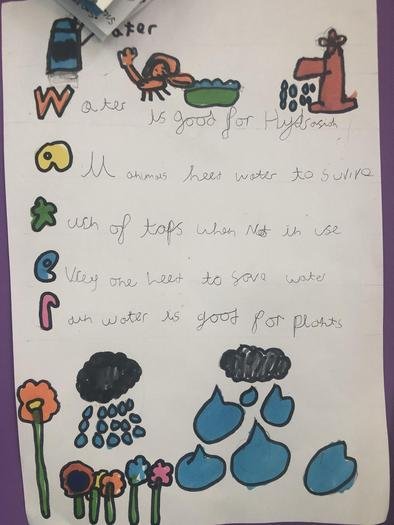 ater
Water is good for
a animas heet water to Suvive
turh of taps when Not in use
eVeryone heet to Save water
rain water is good for plants